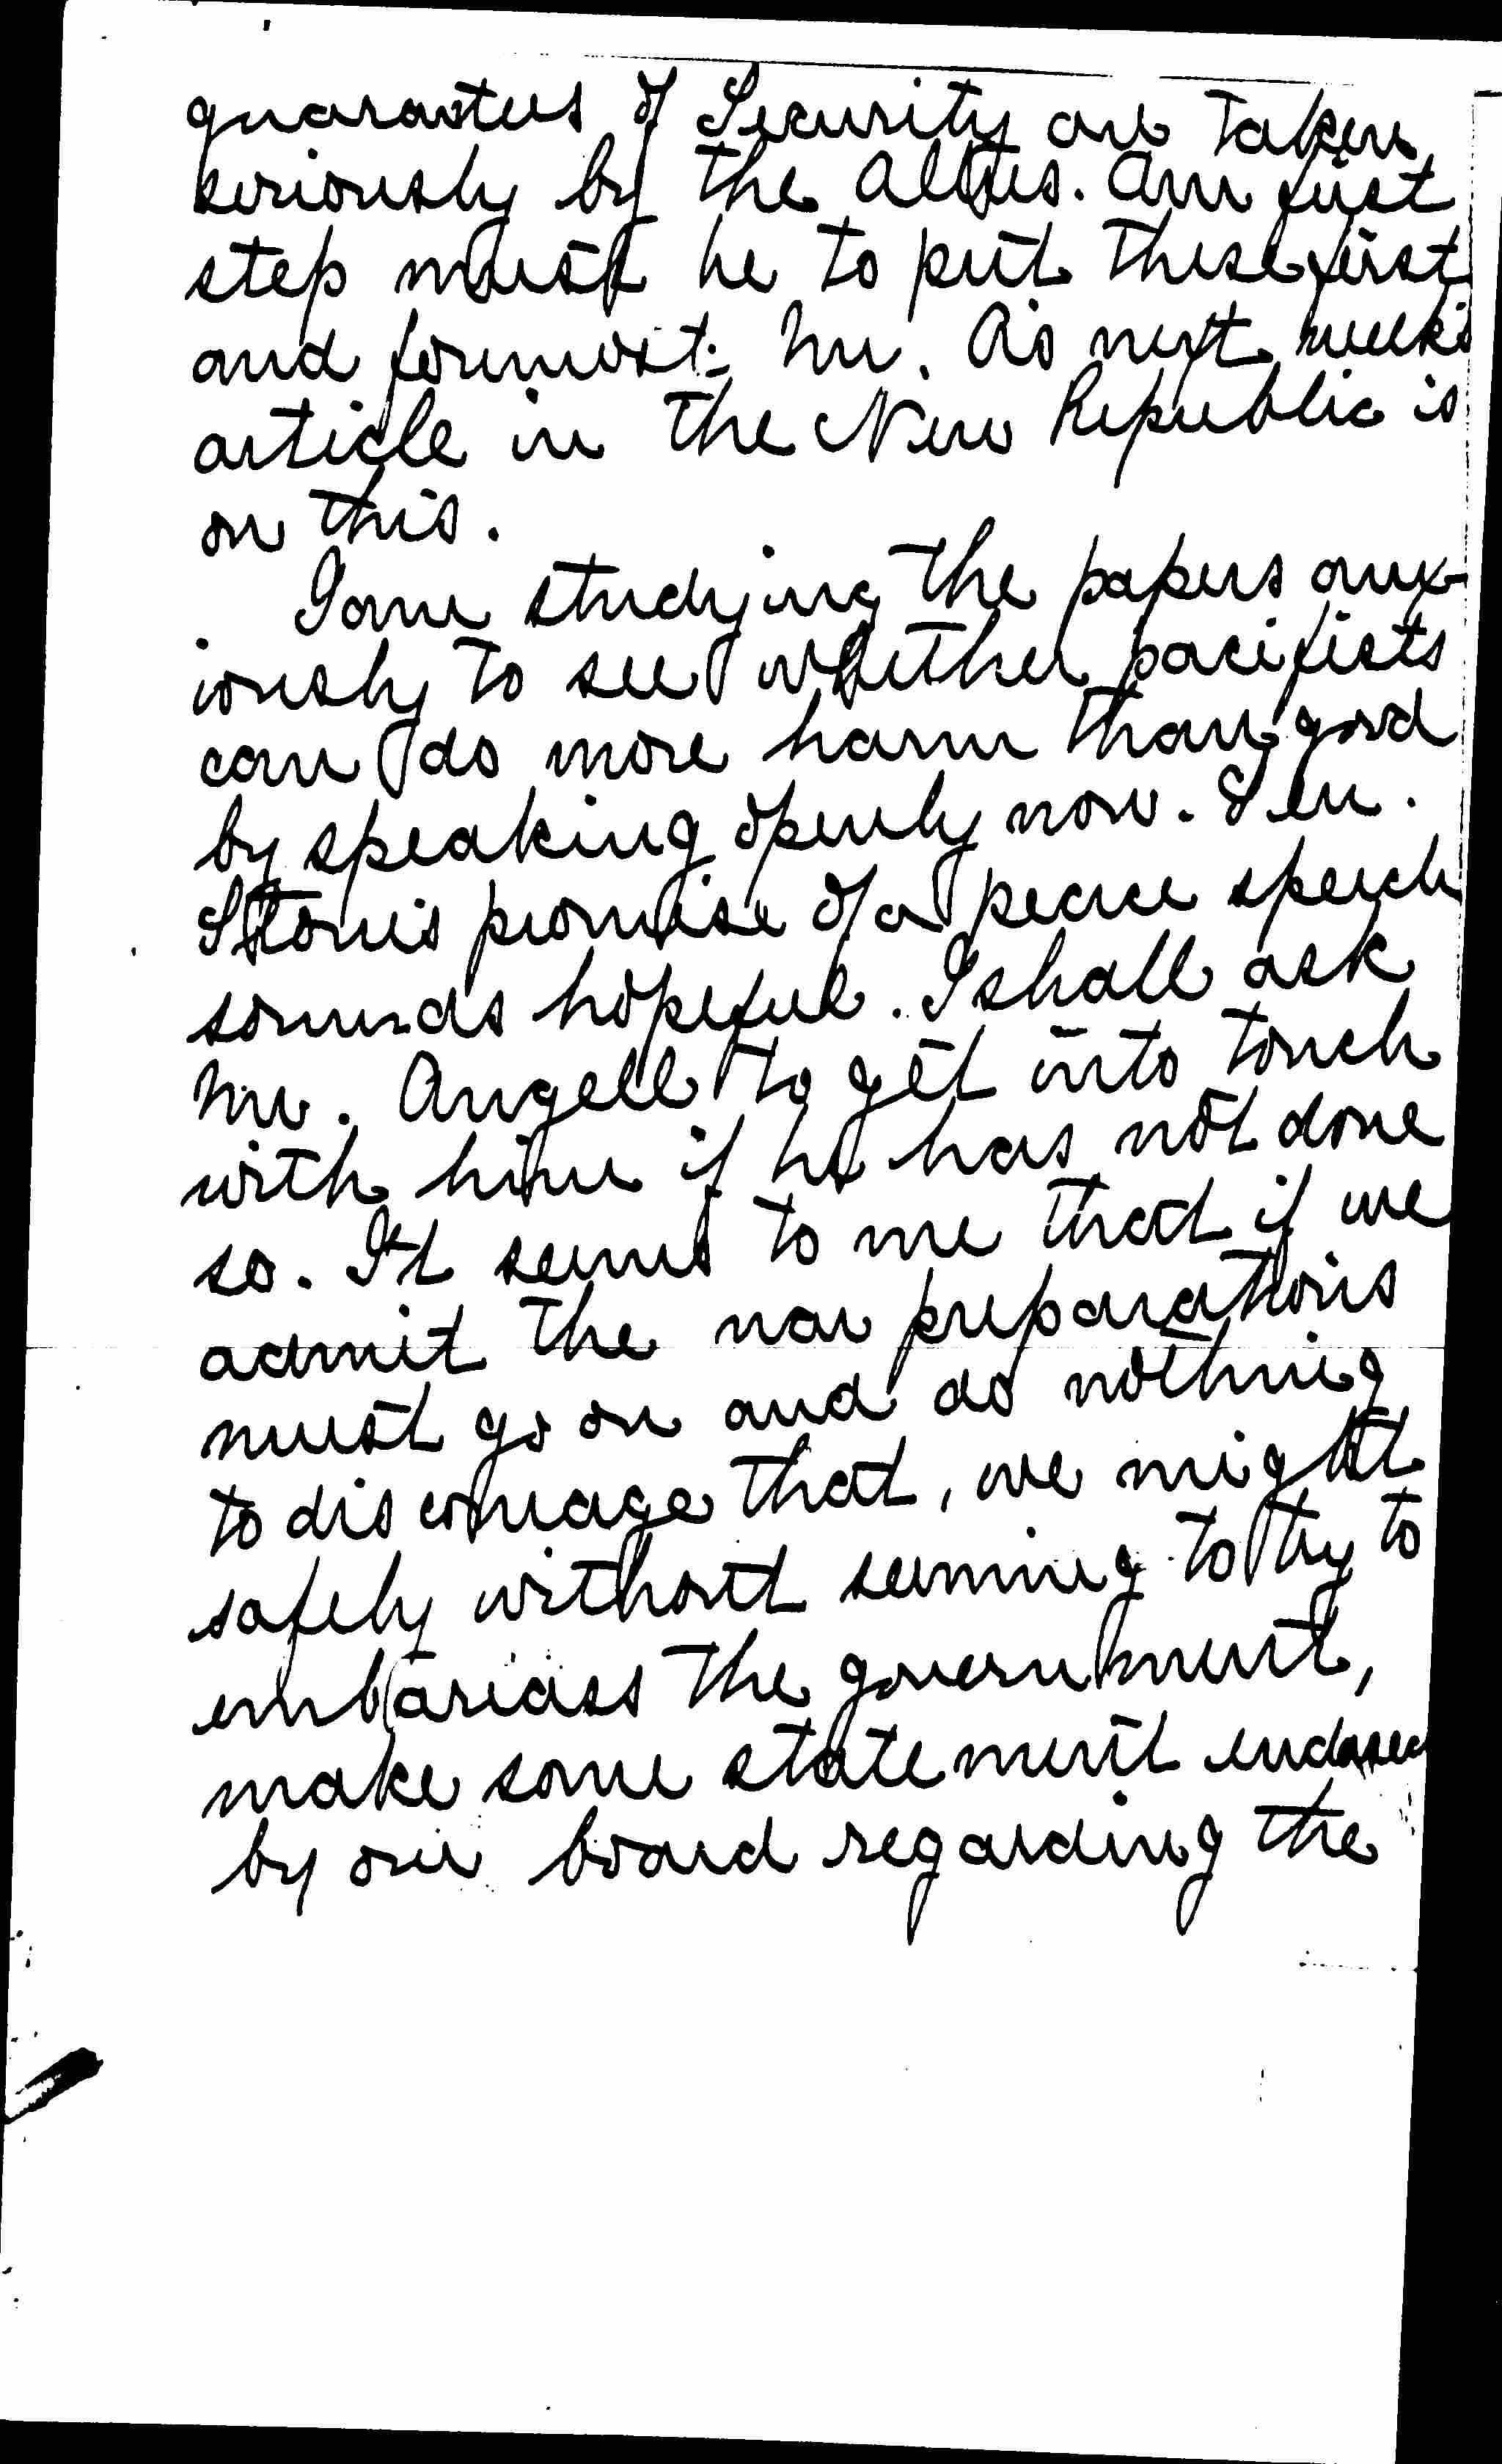 guarantees of Security are taken
seriously by the Allies. Our first
step must be to put these first
and foremost. Mr. A's next week's
article in the New Republic is
on this.
I am studying the papers anx-
iously to see whether pacifists
can do more harm than good
by speaking openly now. Sen.
Stone's promise of a peace speech
sounds hopeful. I shall ask
Mr. Angell to get into touch
with him if he has not done
so. It seems to me that if we
admit the war preparations
must go on and do nothing
to discourage that, we might
safely without seeming to try to
embarrass the government,
make some statement endorsed
by our board regarding the